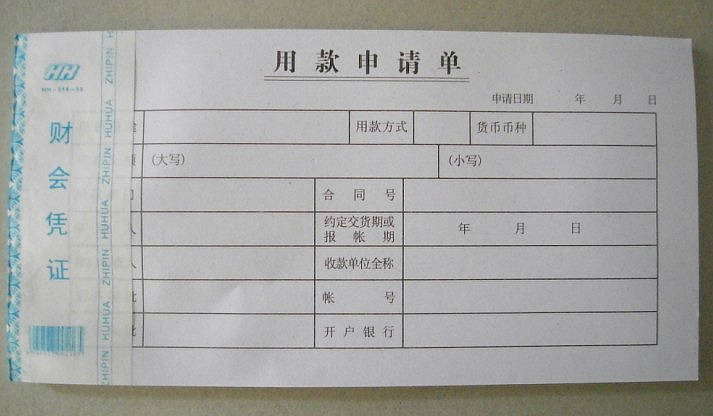 用款申请单
申请日期 年 月 日
用款方式 货币币种
(大写) (小写)
合同号
约定交货期或
报帐期 年 月 日
收款单位全称
帐号
开户银行
HH
财会凭证
ZHIPIN HUHUA ZHIPIN HUHUA ZHIPIN HUHUA ZHIPIN